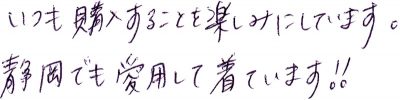 いつも購入することを楽しみにしています。
静岡でも愛用して着ています!!